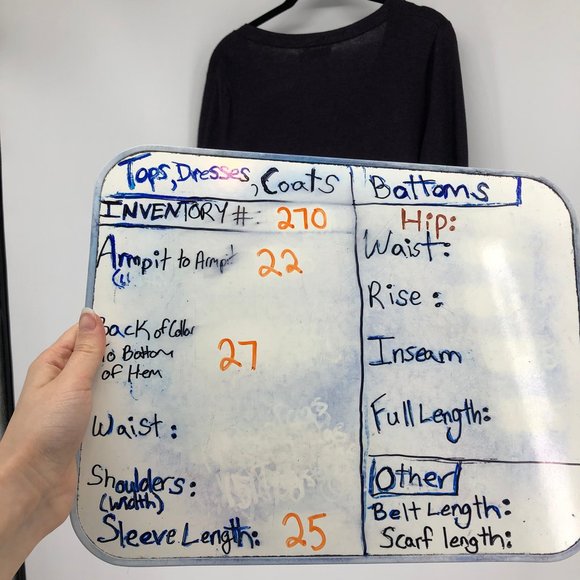 Tops, Dresses, Coats
INVENTORY #: 270
Armpit to Armpit 22
Back of Collar
to Bottom
of Hem 27
Waist:
Shoulders:
(width)
Sleeve Length: 25
Bottoms
Hip:
Waist:
Rise:
Inseam
Full Length:
Other
Belt Length:
Scarf length: